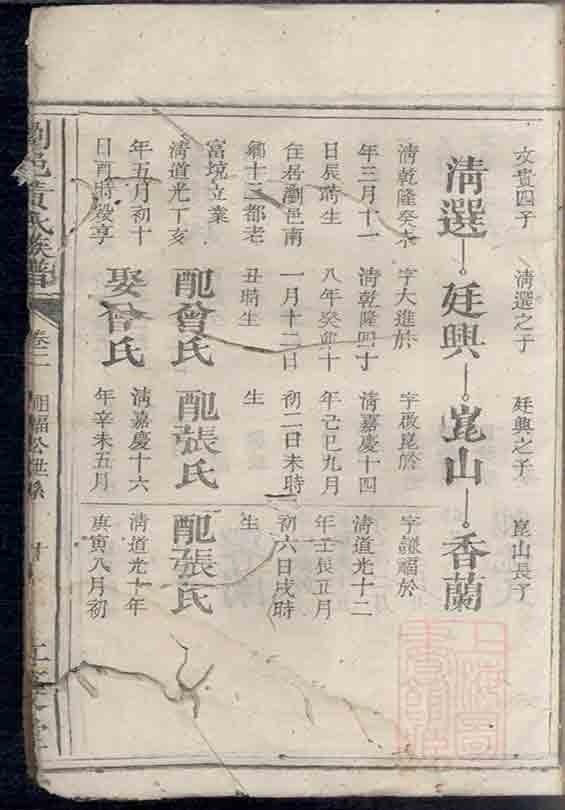 文貴四子
淸選之子
廷興之子
崑山長子
淸選
廷興
崑山
香蘭
淸乾隆癸未
年三月十一
日辰時生
住居瀏邑南
鄉十三都老
富境立業
淸道光丁亥
年五月初十
日酉時歿享
字大進於
淸乾隆四十
八年癸卯十
一月十二日
丑時生
配曾氏
娶曾氏
字啟崑於
淸嘉慶十四
年己巳九月
初二日未時
生
配張氏
淸嘉慶十六
年辛未五月
字謙福於
淸道光十二
年壬辰正月
初六日戌時
生
配張氏
淸道光十年
庚寅八月初
瀏邑黃氏族譜
卷二
福公世系
上海圖書館